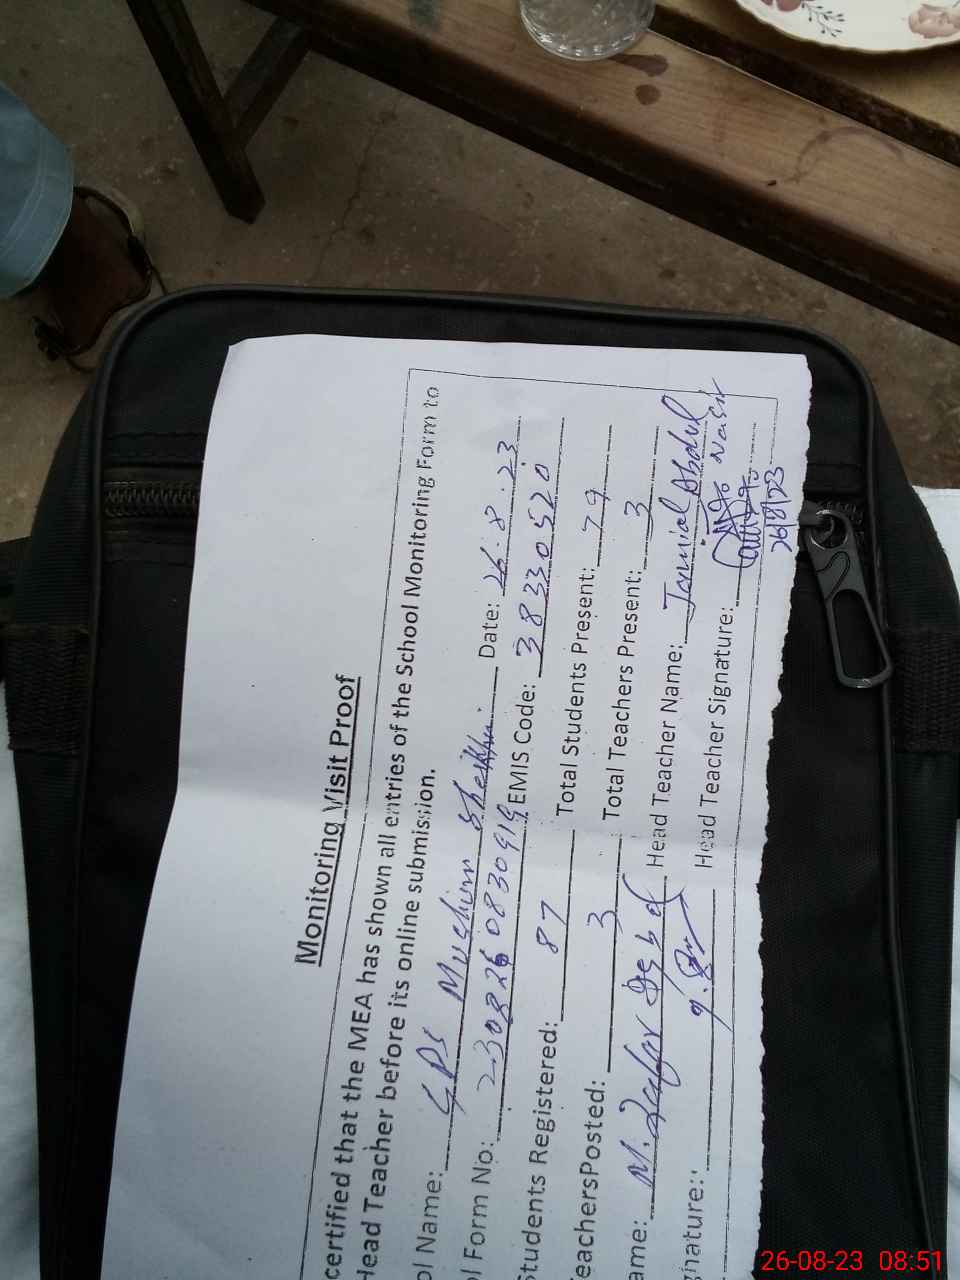 Monitoring Visit Proof
certified that the MEA has shown all entries of the School Monitoring Form to
Head Teacher before its online submission.
ol Name: GPS Muslim Sheikh Date: 26.8.23
ol Form No: 230826 0830919 EMIS Code: 38330520
Students Registered: 87 Total Students Present: 79
TeachersPosted: 3 Total Teachers Present: 3
ame: M. Zafar Iqbal Head Teacher Name: Jamial Abdul Nasir
gnature: Head Teacher Signature:
26/8/23
26-08-23 08:51